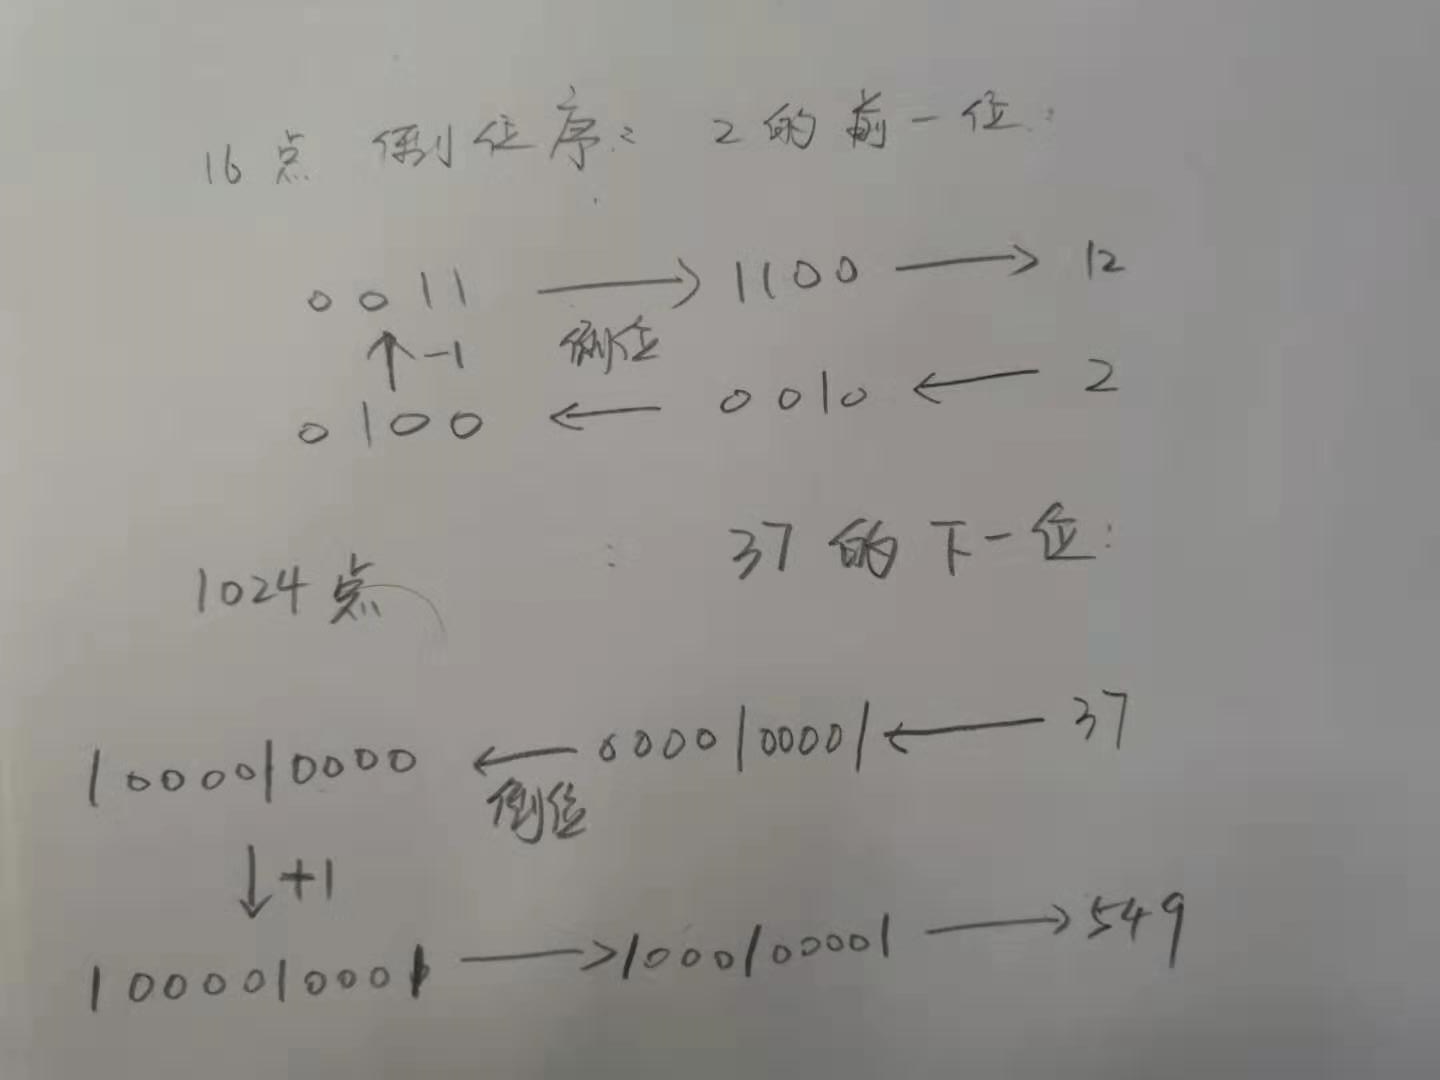 16点 倒位序: 2的前一位:
0011 → 1100 → 12
↑-1 倒位
0100 ← 0010 ← 2
1024点 : 37的下一位:
1000010000 ← 0000100001 ← 37
倒位
↓+1
1000010001 → 1000100001 → 549